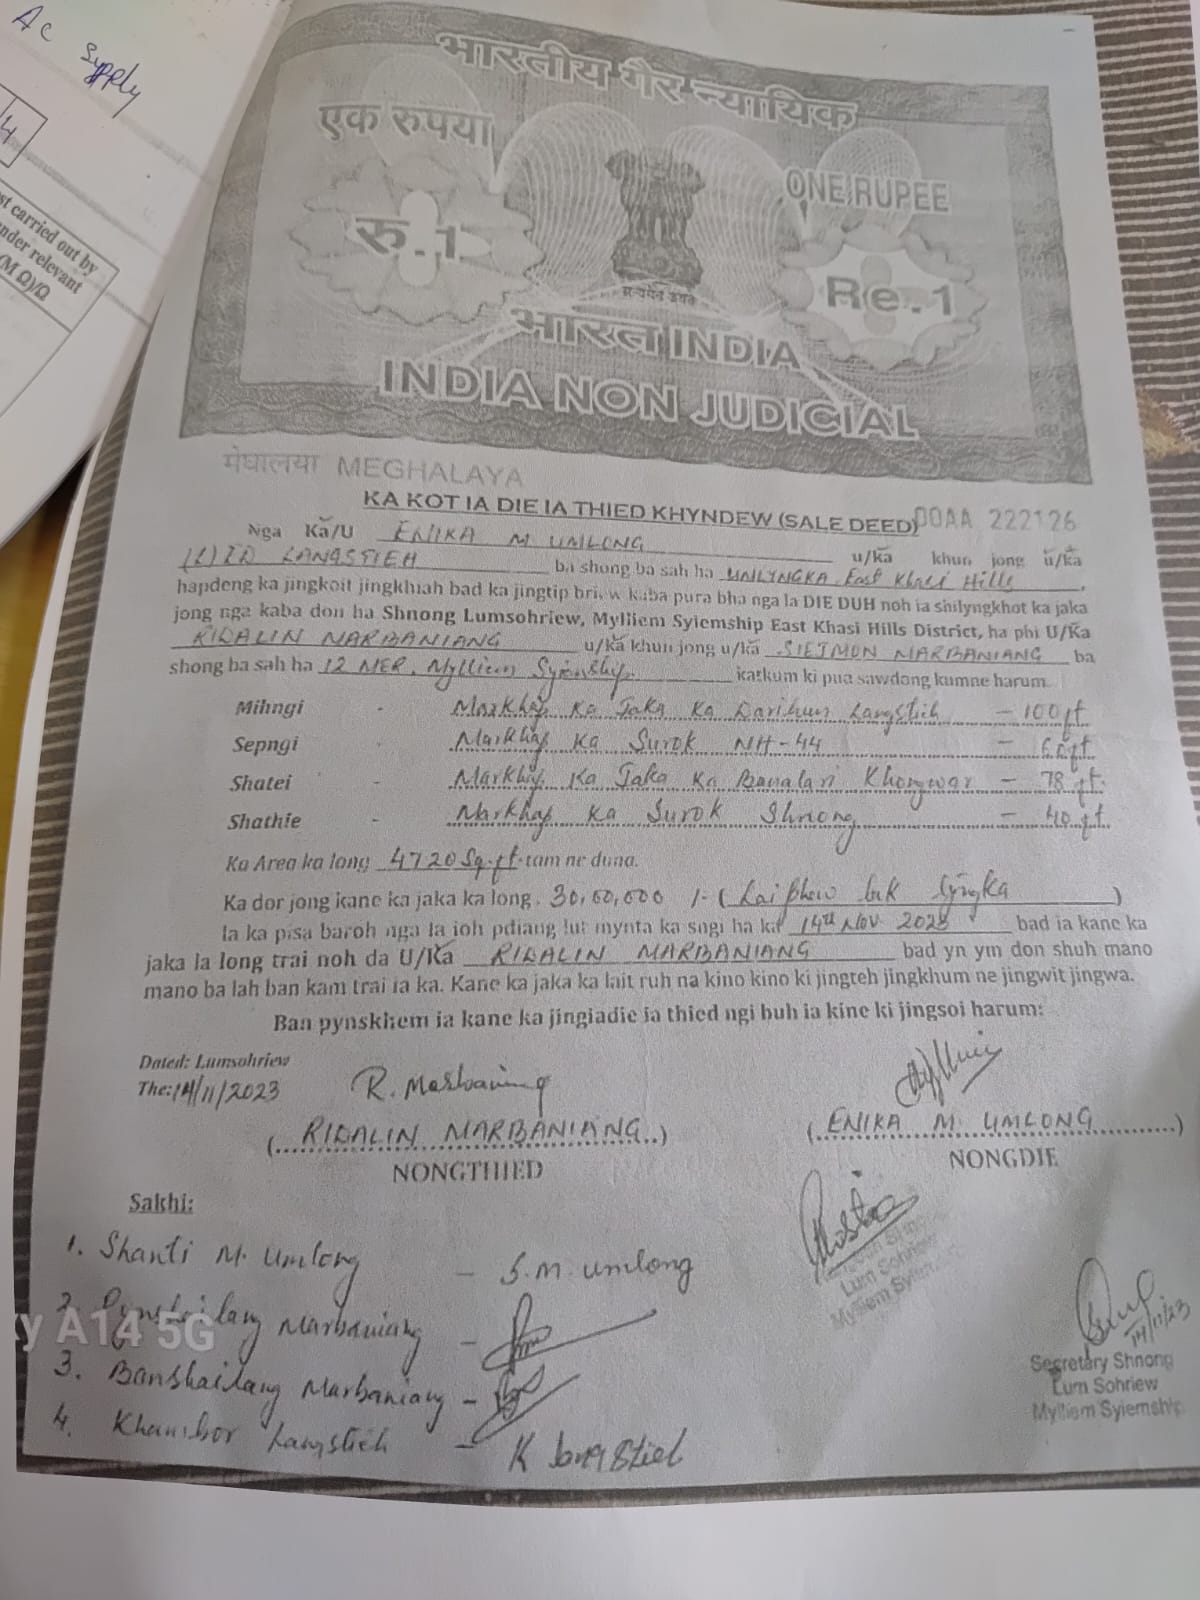 AC supply
4
st carried out by
nder relevant
(M Ω)/Ω
भारतीय गैर न्यायिक
एक रुपया
ONE RUPEE
रु.1
Re.1
सत्यमेव जयते
भारत INDIA
INDIA NON JUDICIAL
मेघालया MEGHALAYA
KA KOT IA DIE IA THIED KHYNDEW (SALE DEED) 00AA 222126
Nga Ka/U ENIKA M UMLONG u/ka khun jong u/ka
(L) ED LANGSTIEH ba shong ba sah ha UMLYNGKA East Khasi Hills
hapdeng ka jingkoit jingkhiah bad ka jingtip briew kaba pura bha nga la DIE DUH noh ia shilyngkhot ka jaka
jong nga kaba don ha Shnong Lumsohriew, Mylliem Syiemship East Khasi Hills District, ha phi U/Ka
RIDALIN MARBANIANG u/ka khun jong u/ka SIETMON MARBANIANG ba
shong ba sah ha 12 MER, Mylliem Syiemship katkum ki pua sawdong kumne harum.
Mihngi - Markhap Ka Jaka Ka Darihun Langstieh - 100 ft
Sepngi - Markhap Ka Surok NH-44 - ft
Shatei - Markhap Ka Jaka Ka Banalari Khongwar - 78 ft.
Shathie - Markhap Ka Surok Shnong - 40 ft.
Ka Area ka long 4720 Sq.ft tam ne duna.
Ka dor jong kane ka jaka ka long. /- (Laiphew lak Syngka)
la ka pisa baroh nga la ioh pdiang lut mynta ka sngi ha ka 14th Nov bad ia kane ka
jaka la long trai noh da U/Ka RIDALIN MARBANIANG bad yn ym don shuh mano
mano ba lah ban kam trai ia ka. Kane ka jaka ka lait ruh na kino kino ki jingteh jingkhum ne jingwit jingwa.
Ban pynskhem ia kane ka jingiadie ia thied ngi buh ia kine ki jingsoi harum:
Dated: Lumsohriew
The: 14/11/2023 R. Marbaniang
(RIDALIN MARBANIANG) (ENIKA M. UMLONG)
NONGTHIED NONGDIE
Sakhi:
1. Shanti M. Umlong - S.M. umlong
2. Pynshailang Marbaniang -
3. Banshailang Marbaniang -
4. Khambor Langstieh - K Langstieh
Lum Sohriew
Mylliem
14/11/23
Secretary Shnong
Lum Sohriew
Mylliem Syiemship
y A14 5G